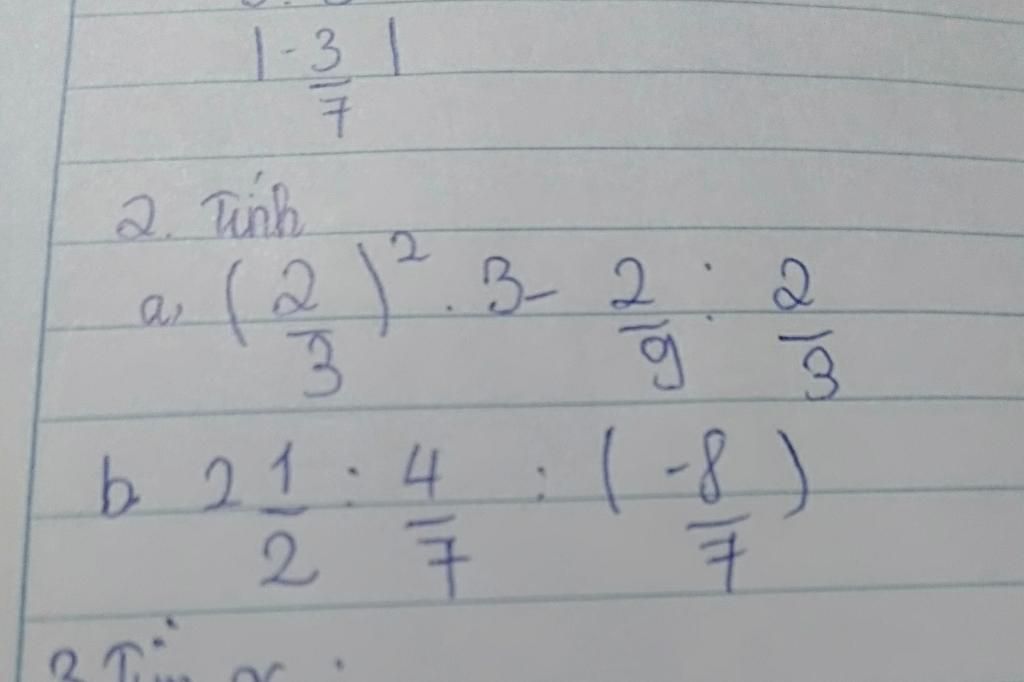 |-3/7|
2. Tính
a, (2/3)² . 3 - 2/9 : 2/3
b 2 1/2 : 4/7 : (-8/7)
3 Tìm x :